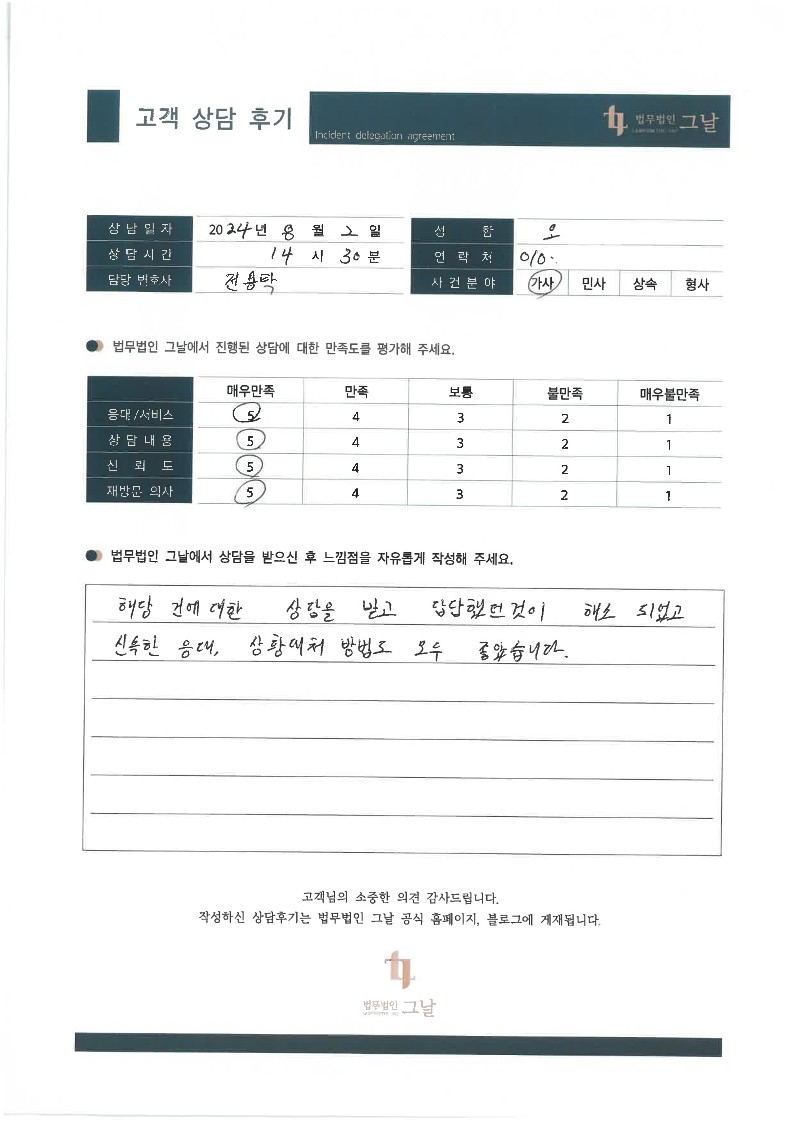 고객 상담 후기
Incident delegation agreement
법무법인 그날
상담일자 2024년 8월 2일 성 함 오
상담시간 14시 30분 연 락 처 010.
담당 변호사 전용탁 사건분야 가사 민사 상속 형사
법무법인 그날에서 진행된 상담에 대한 만족도를 평가해 주세요.
매우만족 만족 보통 불만족 매우불만족
응대/서비스 5 4 3 2 1
상담내용 5 4 3 2 1
신 뢰 도 5 4 3 2 1
재방문 의사 5 4 3 2 1
법무법인 그날에서 상담을 받으신 후 느낌점을 자유롭게 작성해 주세요.
해당 건에 대한 상담을 받고 답답했던것이 해소 되었고
신속한 응대, 상황대처 방법도 모두 좋았습니다.
고객님의 소중한 의견 감사드립니다.
작성하신 상담후기는 법무법인 그날 공식 홈페이지, 블로그에 게재됩니다.
법무법인 그날